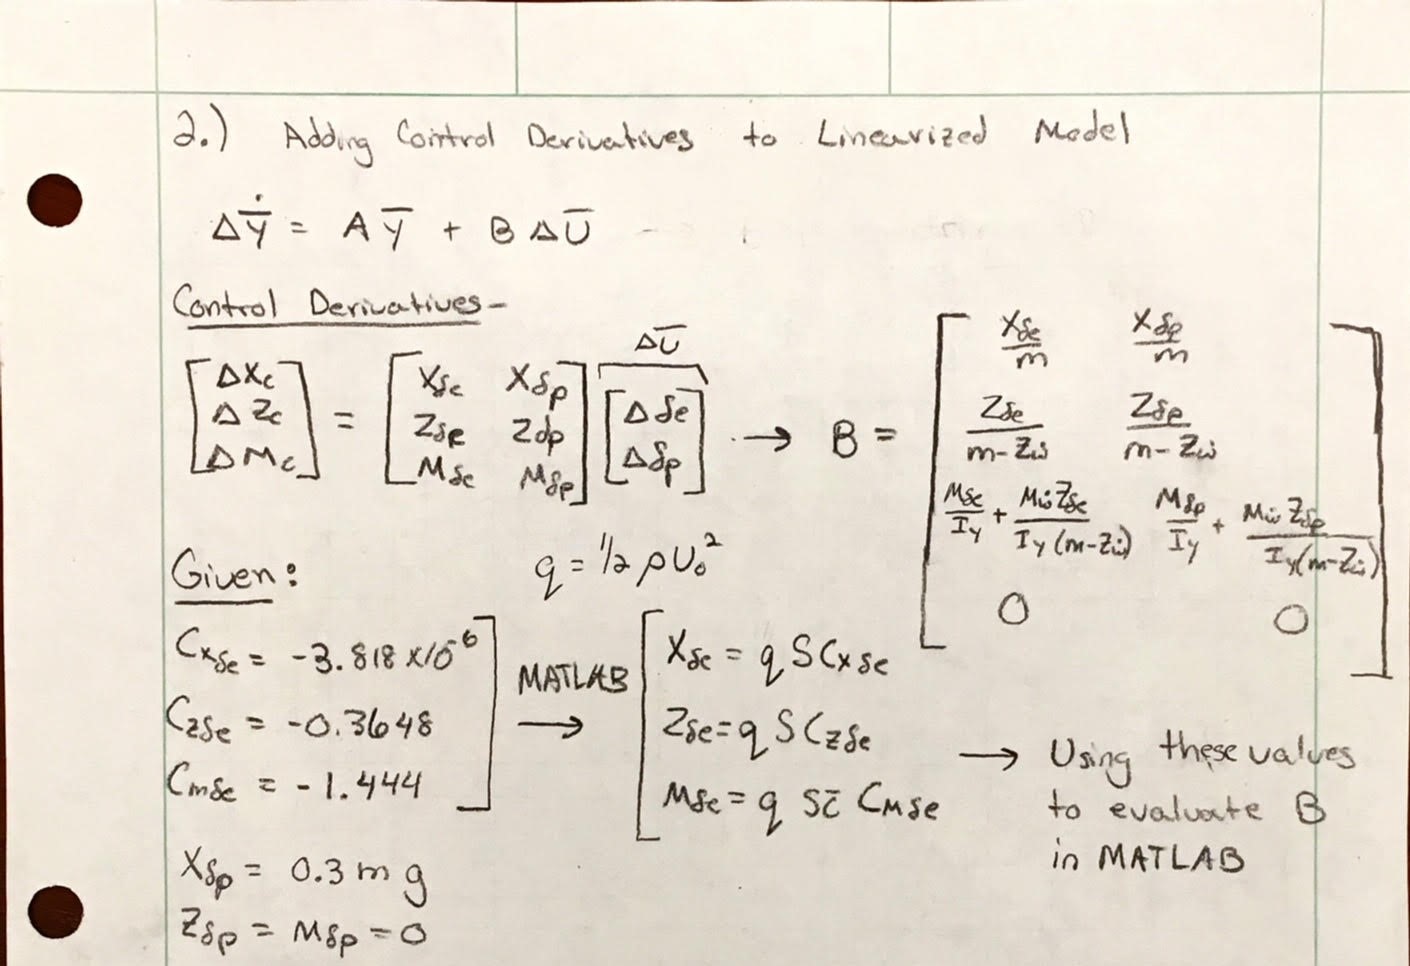 2.) Adding Control Derivatives to Linearized Model
Δẏ̄ = A ȳ + B ΔŪ
Control Derivatives-
ΔŪ
[ΔXc ΔZc ΔMc] = [Xδe Xδp Zδe Zδp Mδe Mδp] [Δδe Δδp] → B = [
Xδe/m Xδp/m
Zδe/(m-Zẇ) Zδp/(m-Zẇ)
Mδe/Iy + MẇZδe/(Iy(m-Zẇ)) Mδp/Iy + MẇZδp/(Iy(m-Zẇ))
0 0 ]
Given: q = 1/2 ρU₀²
Cxδe = -3.818 x10⁻⁶
Czδe = -0.3648
Cmδe = -1.444
MATLAB →
Xδe = q S Cxδe
Zδe = q S Czδe
Mδe = q S c̄ Cmδe
→ Using these values
to evaluate B
in MATLAB
Xδp = 0.3 m g
Zδp = Mδp = 0